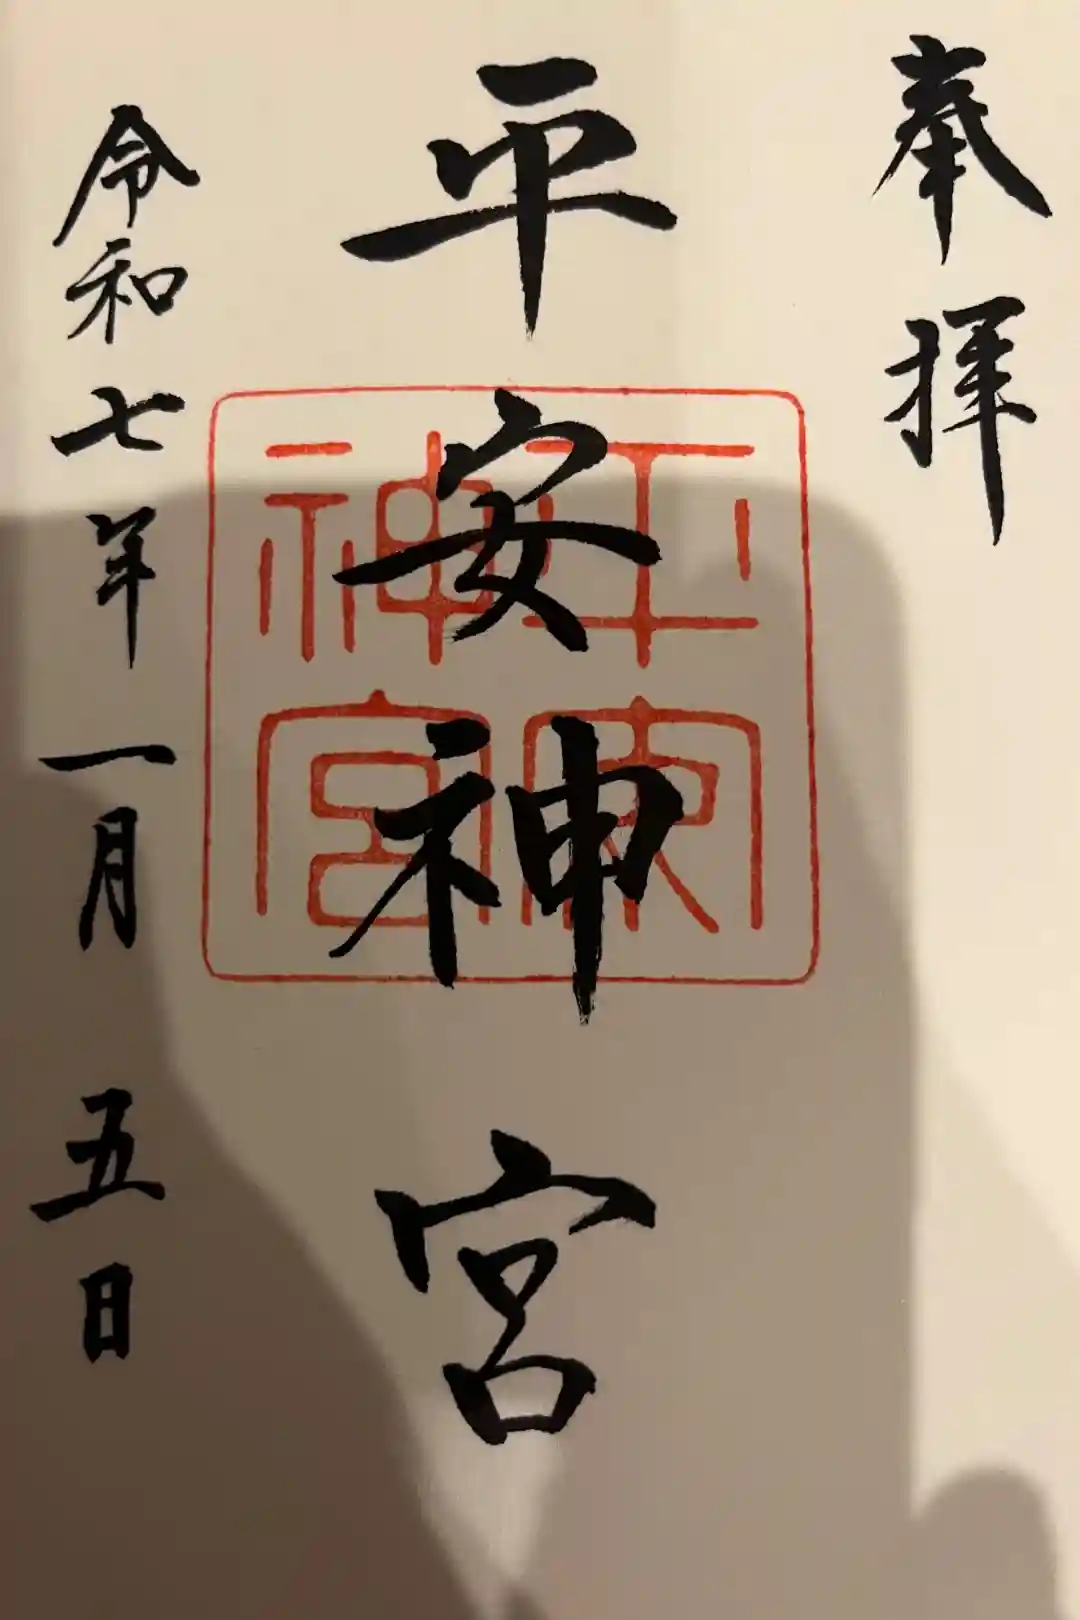 奉拝
平安神宮
平安神宮
令和七年一月五日